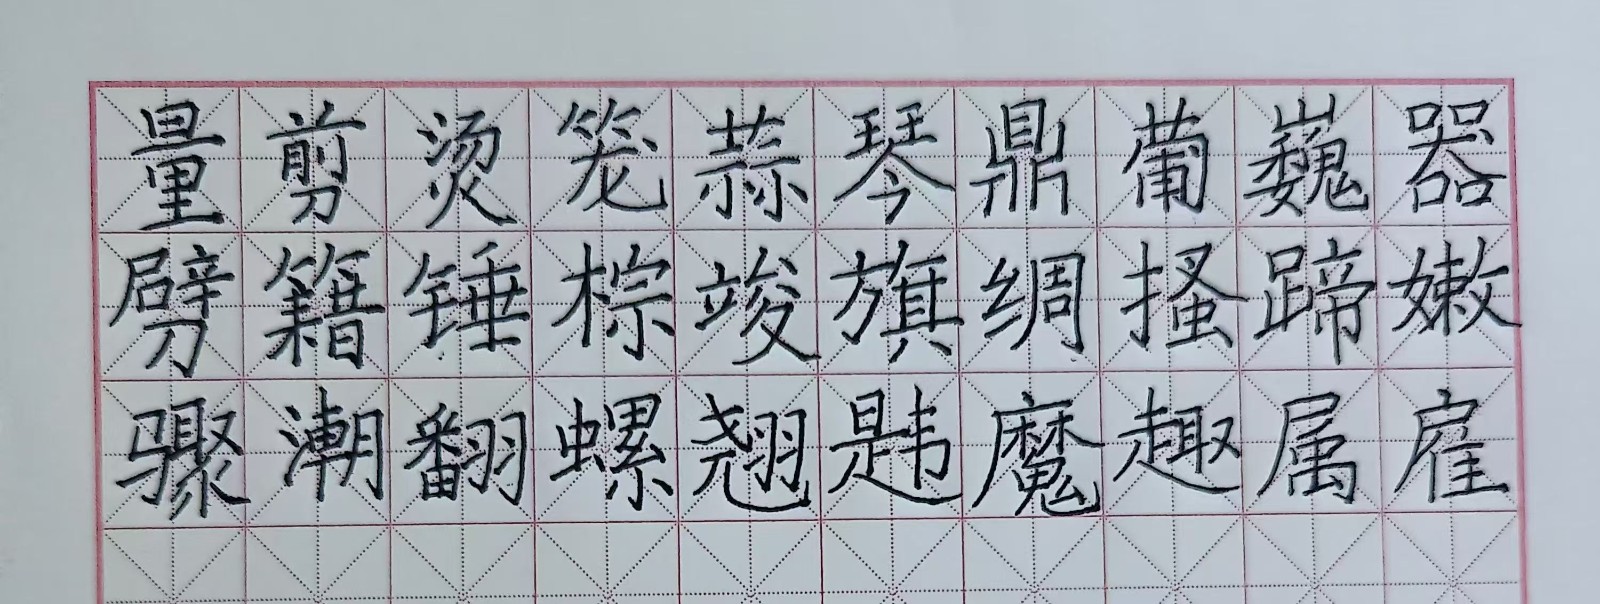 量剪烫笼蒜琴鼎葡巍器
劈籍锤棕竣旗绸搔蹄嫩
骤潮翻螺翘韪魔趣属雇